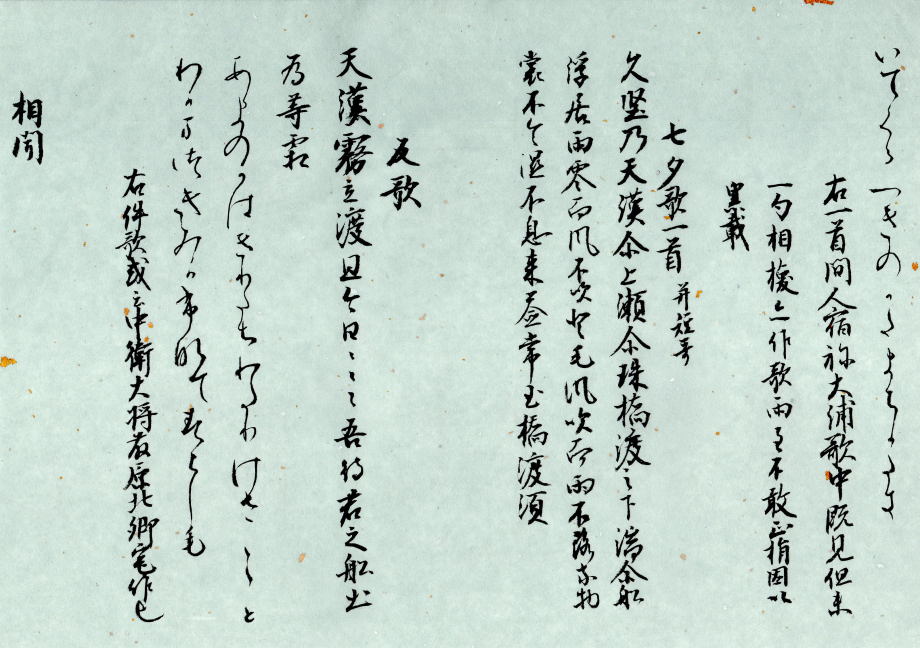 いてくるつきのかたまちかたき
右一首間人宿祢大浦歌中既見但末
一句相換亦作歌両主不敢正指因以
累載
七夕歌一首并短哥
久堅乃天漢尓上瀬尓珠橋渡之下湍尓船
浮居雨零而風不吹登毛風吹而雨不落等物
裳不令湿不息来益常玉橋渡須
反歌
天漢霧立渡且今日々々々吾待君之船出
為等霜
あまのかはきりたちわたりけふゝゝと
わかまつきみか布那てすらし毛
右件歌或云中衛大将藤原北卿宅作也
相聞